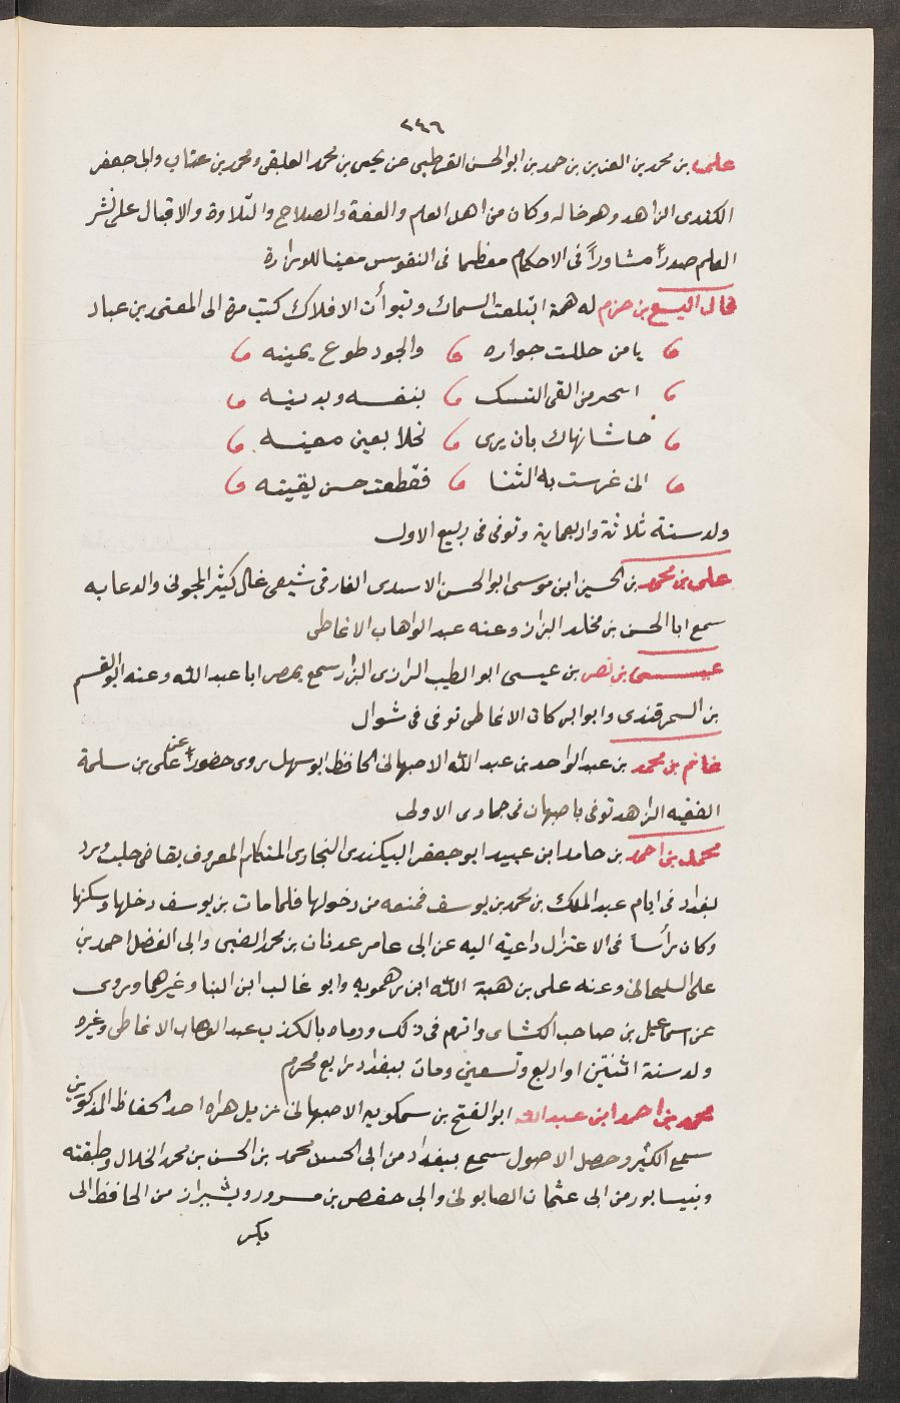 ٢٤٦
على بن محمد بن العزيز بن حمد بن ابو الحسن القرطبى عن يحيى بن محمد العليقى ومحمد بن عتاب وابى جعفر
الكندى الزاهد وهو خاله وكان من اهل العلم والعفة والصلاح والتلاوة والاقبال على نشر
العلم صدراً مشاوراً فى الاحكام معظما فى النفوس معينا للوزارة
قال اليسع بن حزم له همة ابتلعت السماك وتبوأت الافلاك كتبت مرة الى المعتمد بن عباد
يا من حللت جواره والجود طوع يمينه
اسحر من القى التمسك بنفسه وبدينه
حاشا نهاك بان يرى نحلا بعين معينه
انى غرست به الثنا فقطعت حسن يقينه
ولد سنة ثلاثة واربعماية وتوفى فى ربيع الاول
على بن محمد بن الحسين ابن موسى ابو الحسن الاسدى الفارقى شيعى غال كثير المجونى والدعابه
سمع ابا الحسن بن مخلد البزاز وعنه عبد الواهاب الانماطى
عيسى بن نصر بن عيسى ابو الطيب الرازى البزار سمع بمصر ابا عبد الله وعنه ابو القسم
بن السمرقندى وابو البركات الانماطى توفى فى شوال
غانم بن محمد بن عبد الواحد بن عبد الله الاصبهانى الحافظ ابو سهل يروى حضوراً عن على بن سلمة
الفقيه الزاهد توفى باصبهان فى جمادى الاولى
محمد بن احمد بن حامد ابن عبيد ابو جعفر البيكندى البخارى المتكلم المعروف بقاضى حلب ورد
بغداد فى ايام عبد الملك بن محمد بن يوسف فمنعه من دخولها فلما مات بن يوسف دخلها وسكنها
وكان رأساً فى الاعتزال داعية اليه عن ابى عامر عدنان بن محمد الضبى وابى الفضل احمد بن
على السليمانى وعنه على بن هبة الله ابن زهمويه وابو غالب ابن البنا وغيرهما وروى
عن اسماعيل بن صاحب الكشانى واتهم فى ذلك ورماه بالكذب عبد الوهاب الانماطى وغيره
ولد سنة اثنتين او اربع وتسعين ومات ببغداد رابع محرم
محمد بن احمد ابن عبد الله ابو الفتح بن سمكويه الاصبهانى نزيل هراه احد الحفاظ المذكورين
سمع الكثير وحصل الاصول سمع ببغداد من ابى الحسن محمد بن الحسن بن محمد الخلال وطبقته
ونيسابور من ابى عثمان الصابونى وابى حفص بن مسرور وبشيراز من الحافظ ابى
بكر